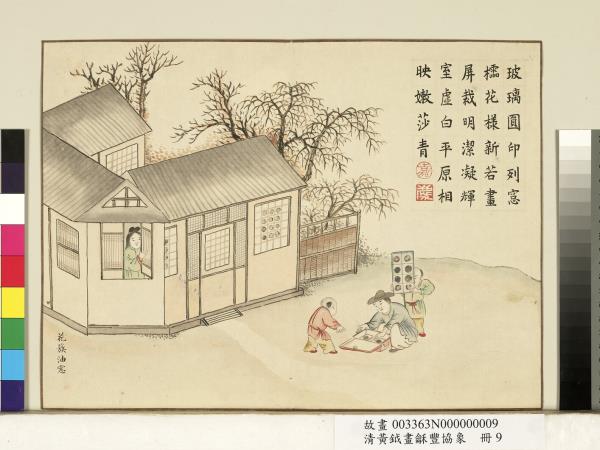 玻璃圓印列窓
櫺花様新若畫
屏裁明潔凝輝
室虛白平原相
映嫩莎青
花簇油窓
故畫 003363N000000009
清黃鉞畫龢豐協象 冊 9